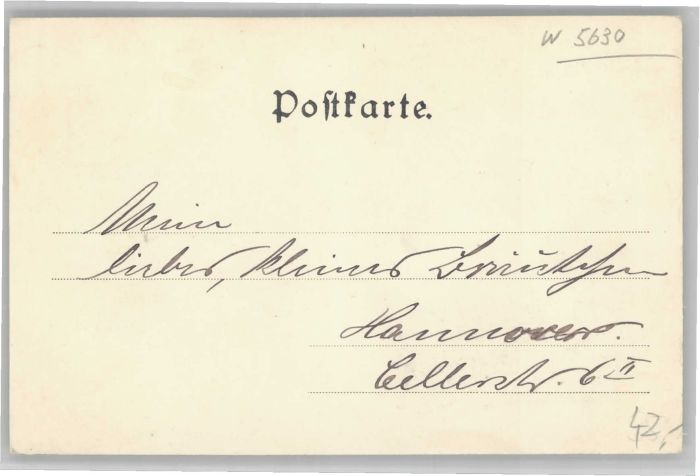 W 5630
Postkarte.
Mein
liebes, kleines Bräutchen
Hannover.
Cellerstr. 6 II
42,-